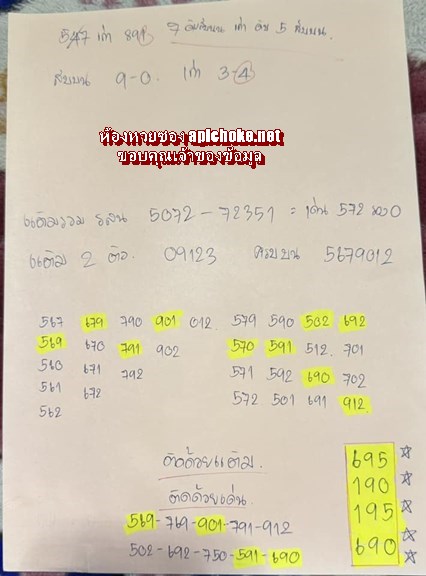 547 เก่า 891
สิบบน 9-0. เก่า 3-4
ห้องหวยซอง apichoke.net
ขอบคุณเจ้าของข้อมูล
แต้มรวม 5072 - 72351 = เด่น 572 0
แต้ม 2 ตัว. 09123 ครบบน 5679012
567 679 790 901 012. 579 590 502 692
569 670 791 902 570 591 512. 701
560 671 792 571 592 690 702
561 672 572 501 691 912.
562
ตัดด้วยแต้ม.
ตัดด้วยเด่น.
569-769-901-791-912
502-692-750-591-690
695 ☆
190 ☆
195 ☆
690 ☆☆